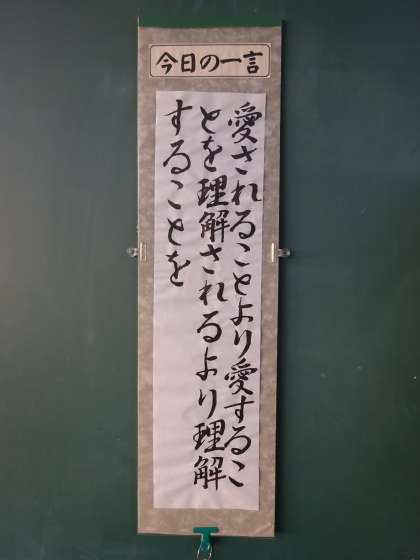 今日の一言
愛されることより愛するこ
とを理解されるより理解
することを